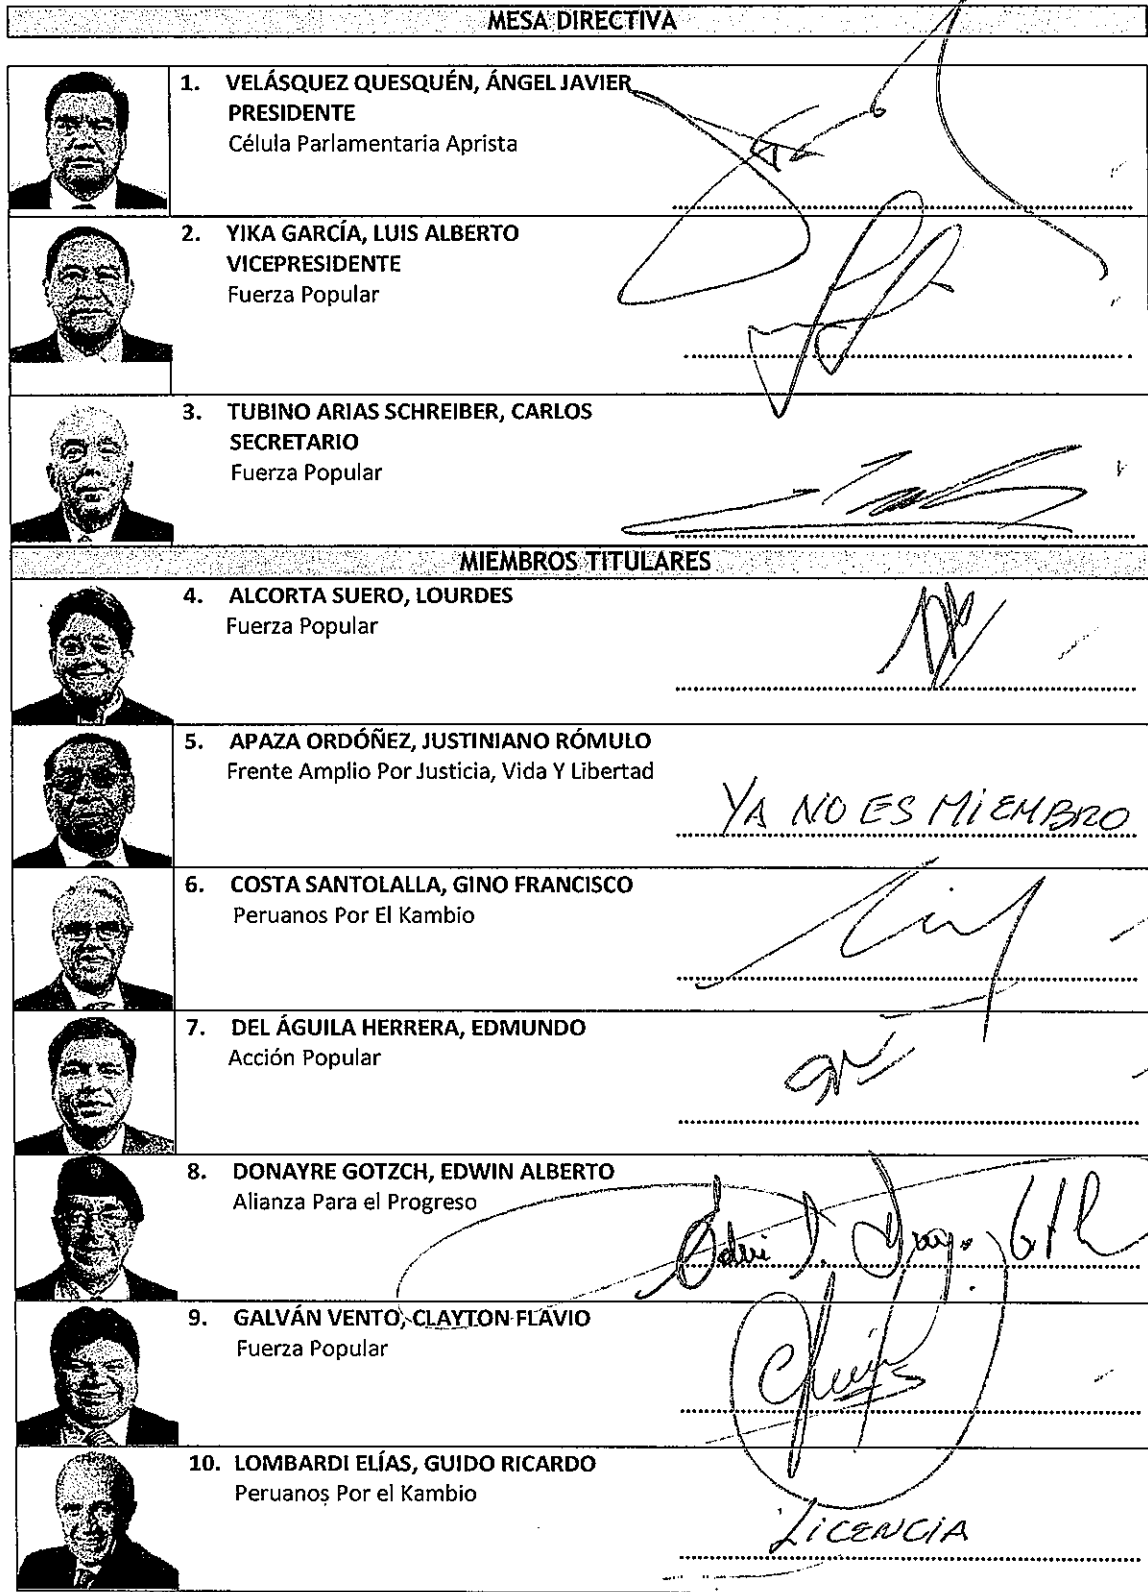 MESA DIRECTIVA
1. VELÁSQUEZ QUESQUÉN, ÁNGEL JAVIER
PRESIDENTE
Célula Parlamentaria Aprista
2. YIKA GARCÍA, LUIS ALBERTO
VICEPRESIDENTE
Fuerza Popular
3. TUBINO ARIAS SCHREIBER, CARLOS
SECRETARIO
Fuerza Popular
MIEMBROS TITULARES
4. ALCORTA SUERO, LOURDES
Fuerza Popular
5. APAZA ORDÓÑEZ, JUSTINIANO RÓMULO
Frente Amplio Por Justicia, Vida Y Libertad
YA NO ES MiEMBRO
6. COSTA SANTOLALLA, GINO FRANCISCO
Peruanos Por El Kambio
7. DEL ÁGUILA HERRERA, EDMUNDO
Acción Popular
8. DONAYRE GOTZCH, EDWIN ALBERTO
Alianza Para el Progreso
9. GALVÁN VENTO, CLAYTON FLAVIO
Fuerza Popular
10. LOMBARDI ELÍAS, GUIDO RICARDO
Peruanos Por el Kambio
LiCENCiA